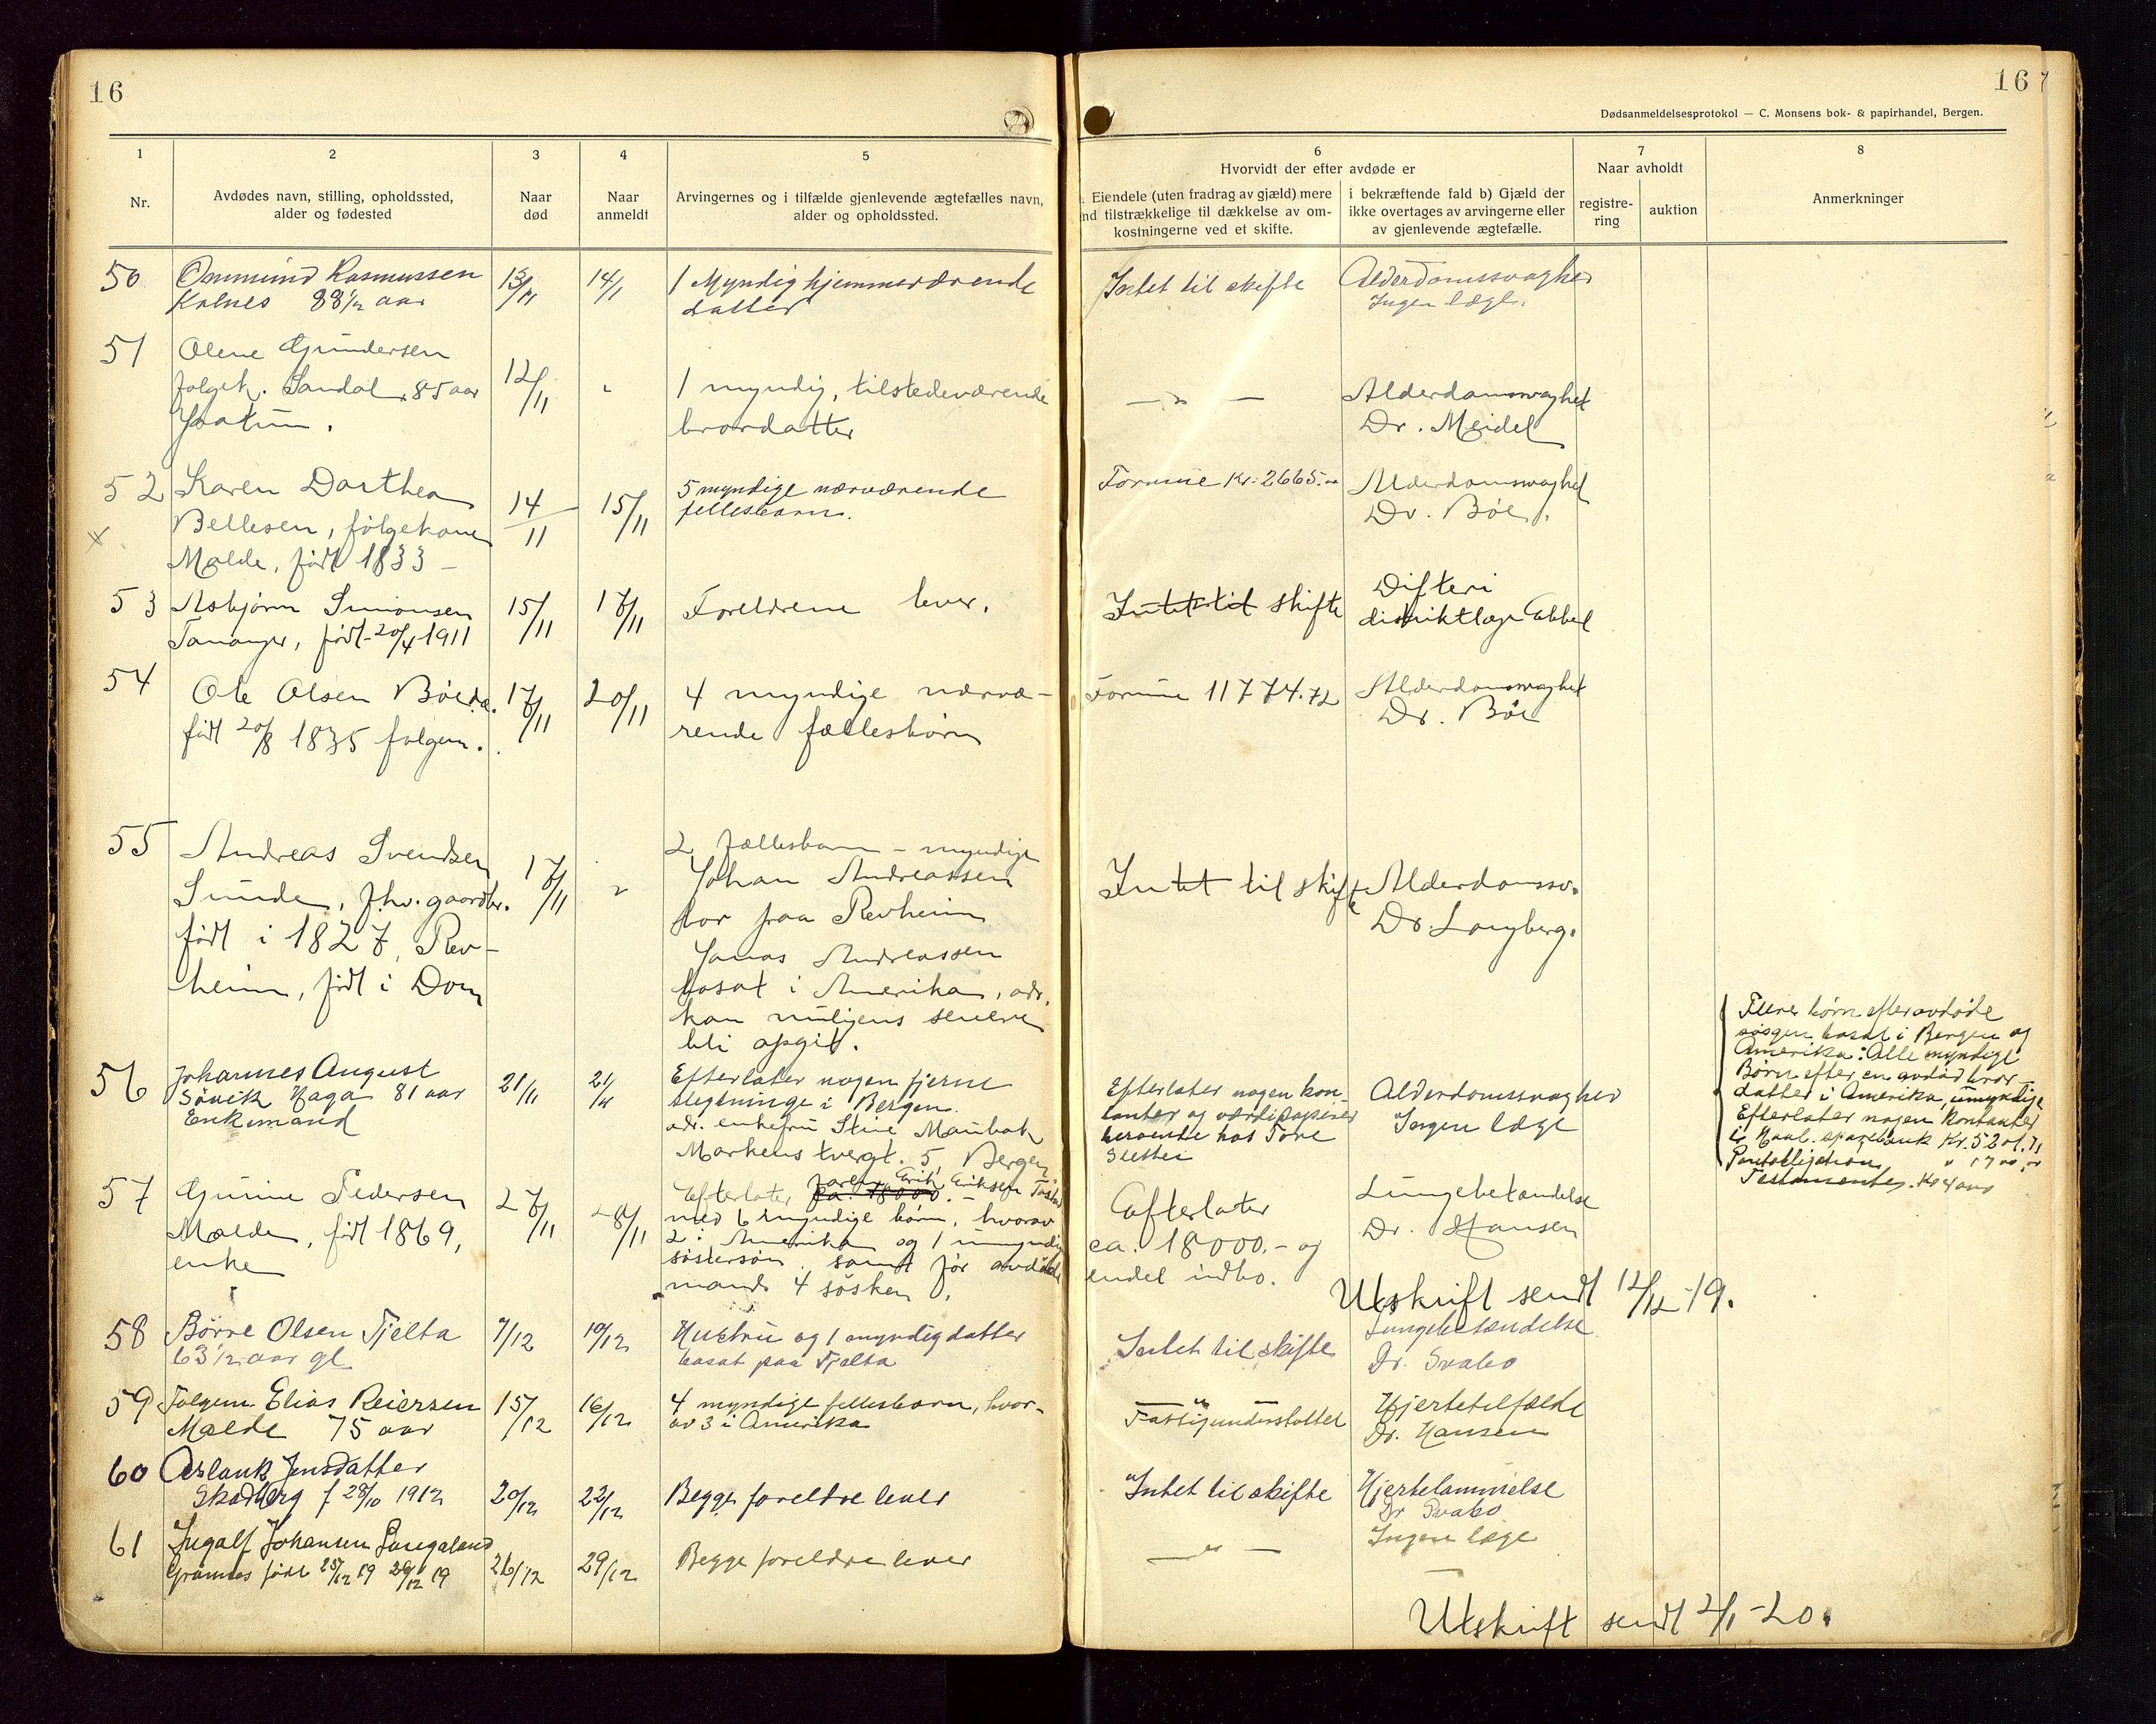 16
16
Dødsanmeldelsesprotokol — C. Monsens bok- & papirhandel, Bergen.
1
Nr.
2
Avdødes navn, stilling, opholdssted,
alder og fødested
3
Naar
død
4
Naar
anmeldt
5
Arvingernes og i tilfælde gjenlevende ægtefælles navn,
alder og opholdssted.
6
Hvorvidt der efter avdøde er
Eiendele (uten fradrag av gjæld) mere
nd tilstrækkelige til dækkelse av om-
kostningerne ved et skifte.
i bekræftende fald b) Gjæld der
ikke overtages av arvingerne eller
av gjenlevende ægtefælle.
7
Naar avholdt
registre-
ring
auktion
8
Anmerkninger
50
Ommund Rasmussen
Kolnes 88½ aar
13/11
14/1
1 Myndig hjemmeværende
datter
Intet til skifte
Alderdomssvaghed
Ingen læge.
51
Olene Gundersen
følgek. Sandal, 85 aar
12/11
"
1 myndig, tilstedeværende
brordatter
— " —
Alderdomsvaghet
Dr. Meidel
52
Karen Dorthea
Bellesen, følgekone
Molde, født 1833 –
14/11
15/11
5 myndige nærværende
fellesbarn.
Formue Kr. 2665.
Alderdomsvaghet
Dr. Böe.
53
Asbjørn Simonsen
Tananger, født 20/4 1911
15/11
17/11
Foreldrene lever.
Intet til skifte
Difteri
distriktlæge Ebbel
54
Ole Olsen Böe
født 20/8 1835 følgem.
17/11
20/11
4 myndige nærvæ-
rende fællesbörn
Formue 11774.72
Alderdomsvaghet
Dr. Böe
55
Andreas Svendsen
Sunde, fhv. gaardbr.
født i 1827, Rev-
heim, født i Dom
17/11
"
2 Fællesbarn – myndige
Johan Andreassen
bor paa Revheim
Jonas Andreassen
bosat i Amerika, adr.
kan muligens senere
bli opgit.
Intet til skifte
Alderdomssv.
Dr. Langberg.
56
Johannes August
Søvik Haga 81 aar
Enkemand
21/11
21/11
Efterlater nogen fjerne
slegtninge i Bergen.
adr. enkefru Stine Maubak
Markens tvergt. 5, Bergen
Efterlater nogen kon-
tanter og værdipapirer
beroende hos Tore
Sletten
Alderdomssvaghed
Ingen læge
Flere børn efter avdøde
søsgen bosat i Bergen og
Amerika: Alle myndige
Børn efter en avdød bror-
datter i Amerika, umyndige
Efterlater nogen kontanter
i Haal. sparebank Kr. 5201.71
Pantobligation " 1700,"
57
Gurine Pedersen
Molde, født 1869,
enke
27/11
28/11
Efterlater faren Erik Eriksen
med 6 myndige børn, hvorav
2 i Amerika og 1 umyndig
søstersøn. samt før avdøde
mands 4 søsken.
Efterlater
ca. 18000.- og
endel indbo.
Lungebetændelse
Dr. Hansen
Utskrift sendt 12/12-19.
58
Børre Olsen Tjelta
63½ aar gl
7/12
10/12
Hustru og 1 myndig datter
bosat paa Tjelta
Intet til skifte
Lungebetændelse
Dr. Svabo
59
Følgem. Elias Reiersen
Molde 75 aar
15/12
16/12
4 myndige fellesbarn, hvor-
av 3 i Amerika
— " —
Fattigunderstøttet
Hjertetilfælde
Dr. Hansen
60
Aslauk Jensdatter
Skadberg f 28/10 1912
20/12
22/12
Begge foreldre lever
Intet til skifte
Hjertelammelse
Dr Svabo
61
Ingolf Johansen
født 25/12 19
26/12
29/12
Begge foreldre lever
— " —
Ingen læge
Utskrift sendt 2/1-20.